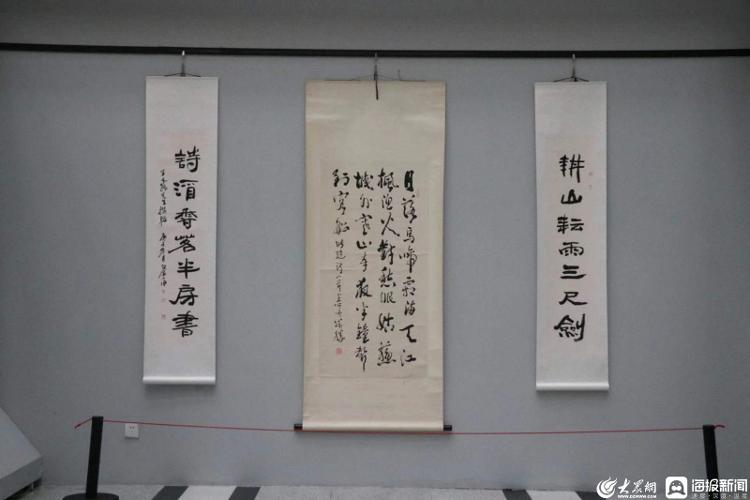 耕山耘雨三尺劍
月落烏啼霜滿天江
楓漁火對愁眠姑蘇
城外寒山寺夜半鐘聲
到客船
詩酒香茗半房書
大众网
WWW.DZWWW.COM
海报新闻